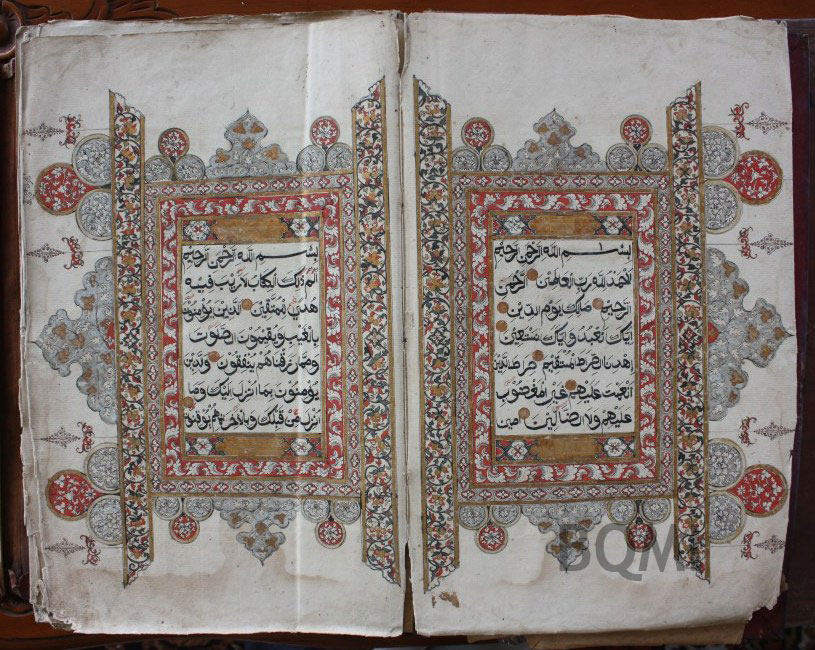 بسم الله الرحمن الرحيم
الحمد لله رب العالمين الرحمن
الرحيم ملك يوم الدين
اياك نعبد واياك نستعين
اهدنا الصرط المستقيم صرط الذين
انعمت عليهم غير المغضوب
عليهم ولا الضالين امين
بسم الله الرحمن الرحيم
الم ذلك الكتاب لا ريب فيه
هدى للمتقين الذين يؤمنون
بالغيب ويقيمون الصلوت
ومما رزقناهم ينفقون والذين
يؤمنون بما انزل اليك وما
انزل من قبلك وبالاخرة هم يوقنون
BQMI